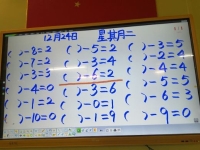 12月24日 星期二
( )-8=2 ( )-5=2 ( )-3=5
( )-7=2 ( )-3=4 ( )-2=4
( )-3=3 ( )-6=2 ( )-4=4
( )-4=0 ( )-3=6 ( )-5=5
( )-1=2 ( )-0=1 ( )-6=3
( )-10=0 ( )-1=9 ( )-9=0